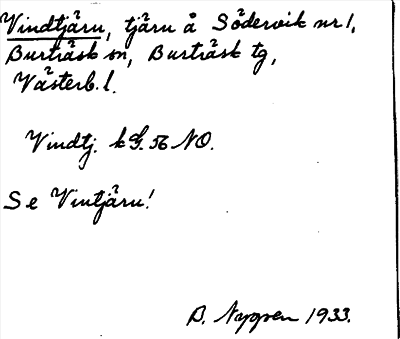 Vindtjärn, tjärn å Södervik nr 1,
Burträsk sn, Burträsk tg,
Västerb. l.
Vindtj. k G. 56 NO.
Se Vintjärn!
B. Nygren 1933.